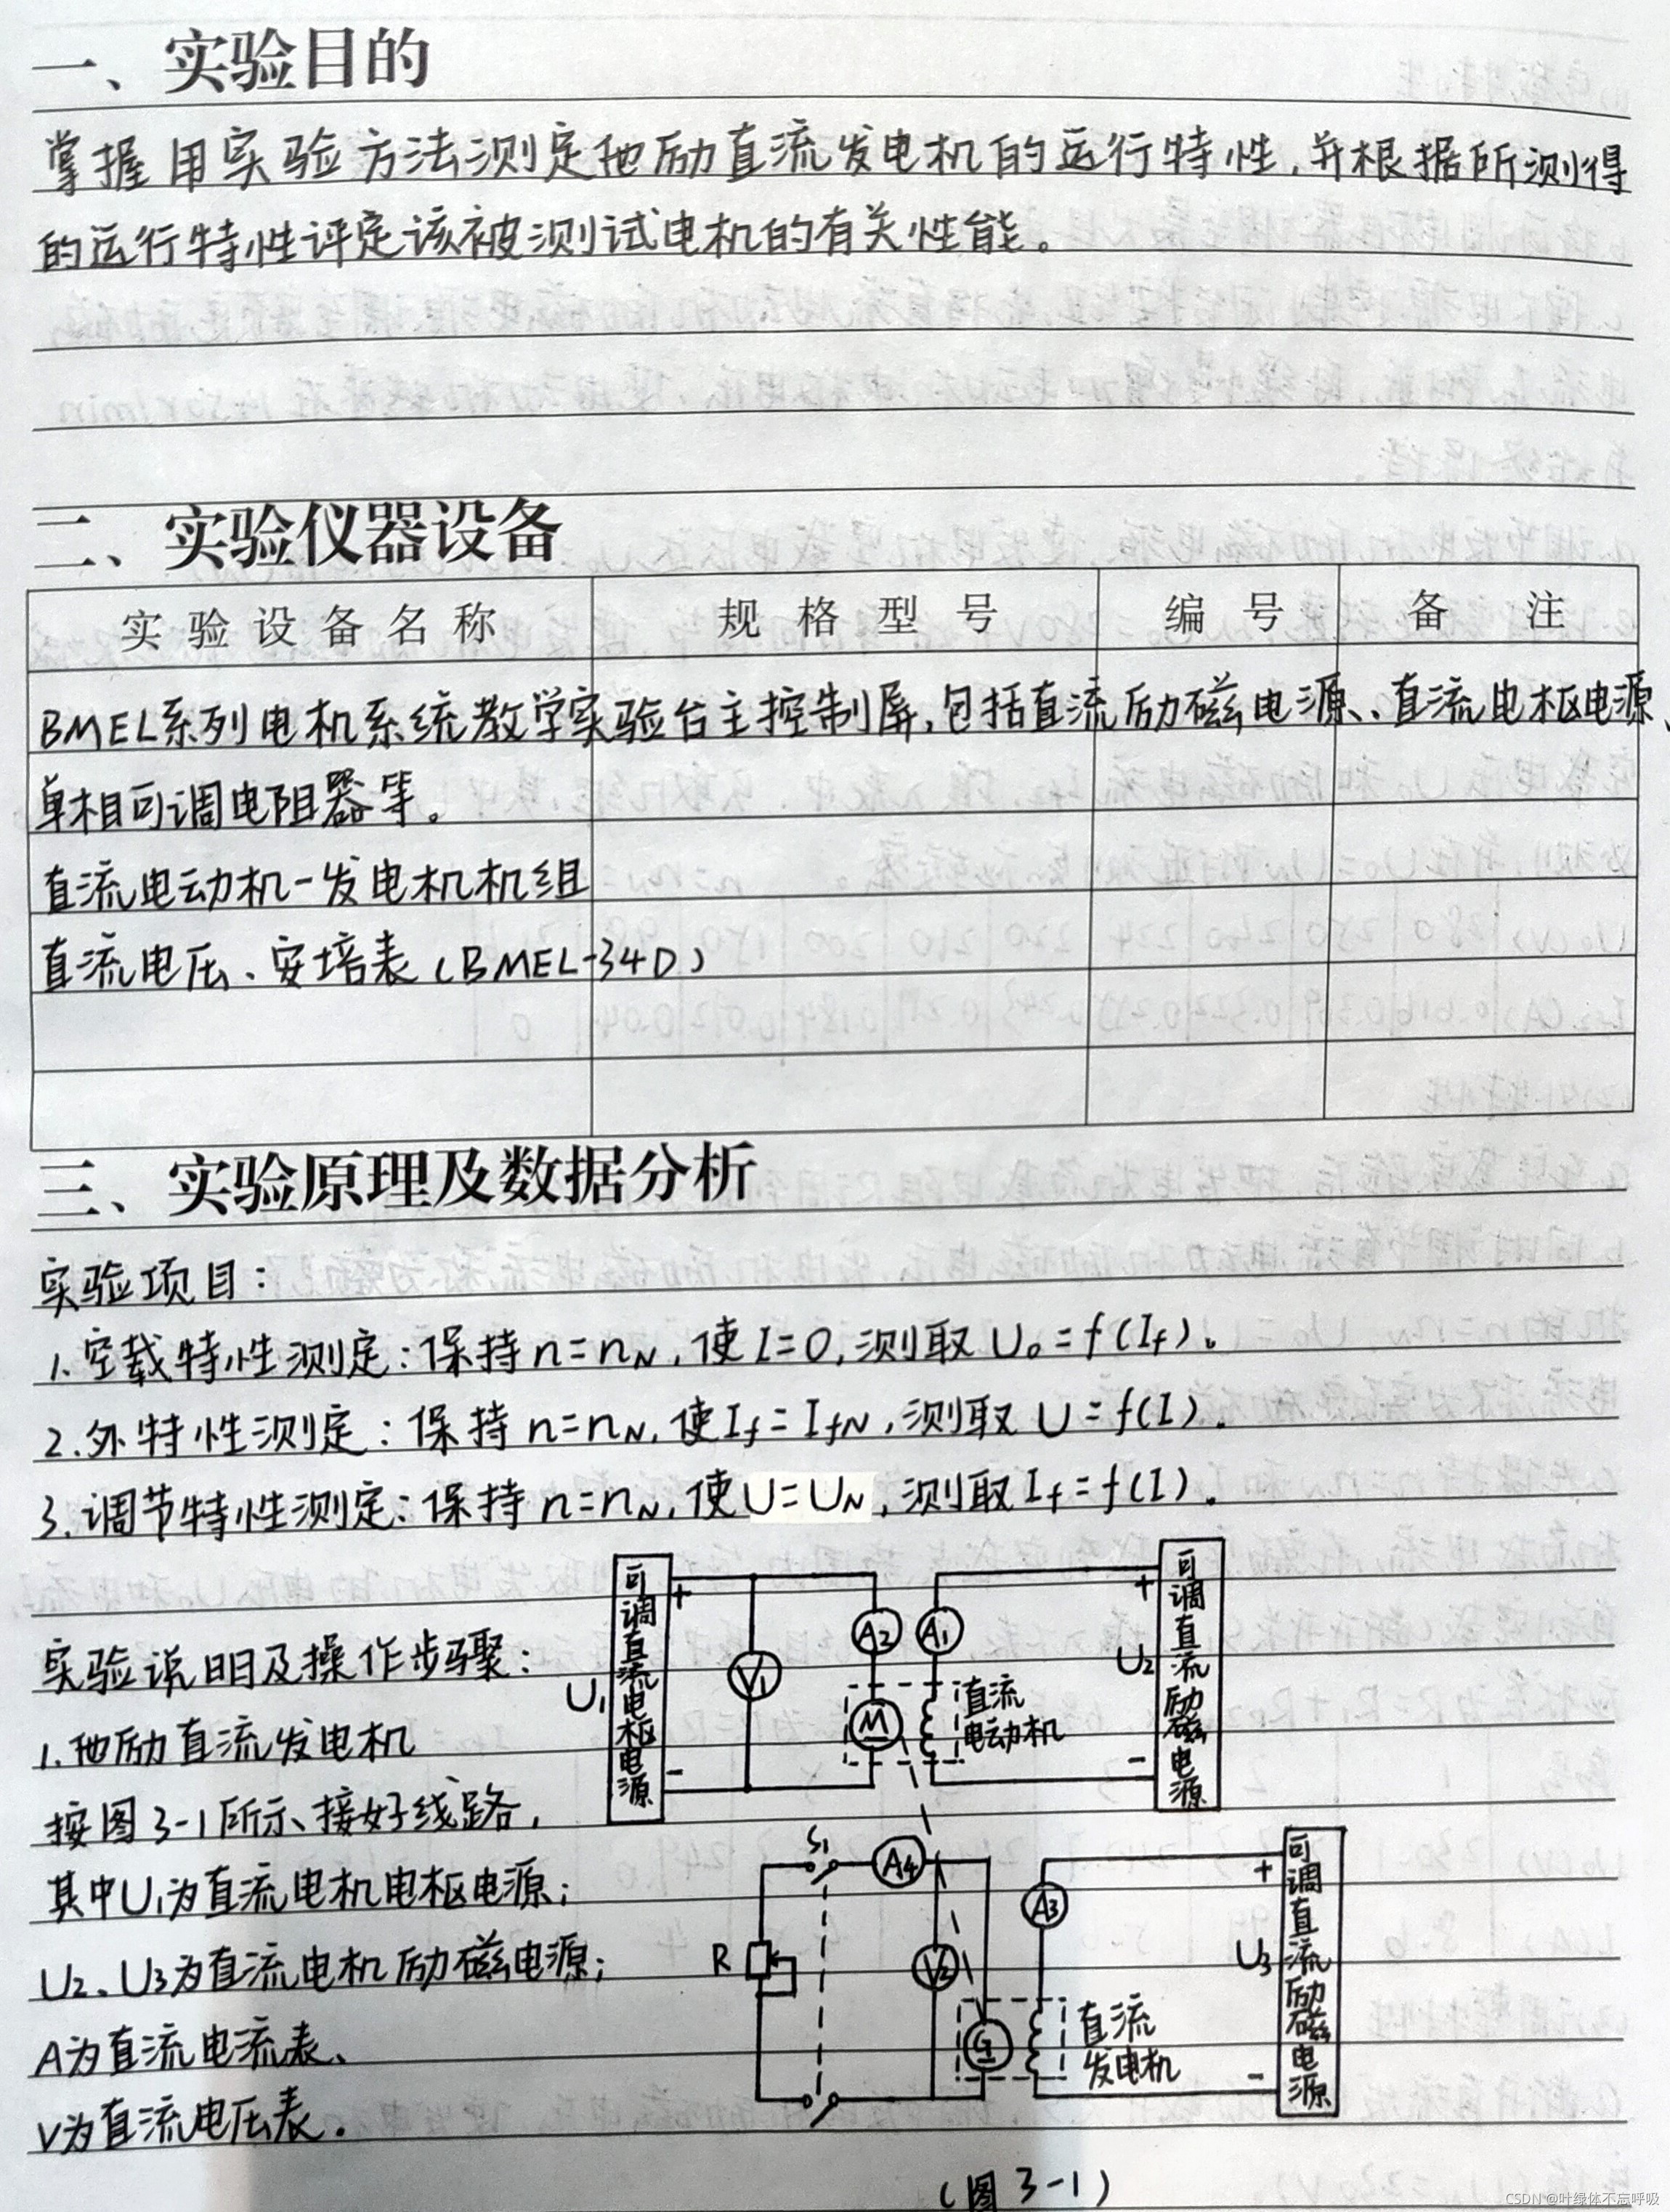 一、实验目的
掌握用实验方法测定他励直流发电机的运行特性,并根据所测得
的运行特性评定该被测试电机的有关性能。
二、实验仪器设备
实验设备名称 规格型号 编号 备注
BMEL系列电机系统教学实验台主控制屏,包括直流励磁电源、直流电枢电源、
单相可调电阻器等。
直流电动机-发电机机组
直流电压、安培表(BMEL-34D)
三、实验原理及数据分析
实验项目:
1.空载特性测定:保持n=nN,使I=0,测取U₀=f(If)。
2.外特性测定:保持n=nN,使If=IfN,测取U=f(I).
3.调节特性测定:保持n=nN,使U=UN,测取If=f(I).
实验说明及操作步骤:
1.他励直流发电机
按图3-1所示、接好线路,
其中U₁为直流电机电枢电源;
U₂、U₃为直流电机励磁电源;
A为直流电流表、
V为直流电压表.
U₁
可调直流电枢电源
+
-
V₁
A₂
A₁
M
直流
电动机
U₂
+
-
可调直流励磁电源
S₁
A₄
R
V₂
G
A₃
直流
发电机
U₃
+
-
可调直流励磁电源
(图3-1)
CSDN @叶绿体不忘呼吸